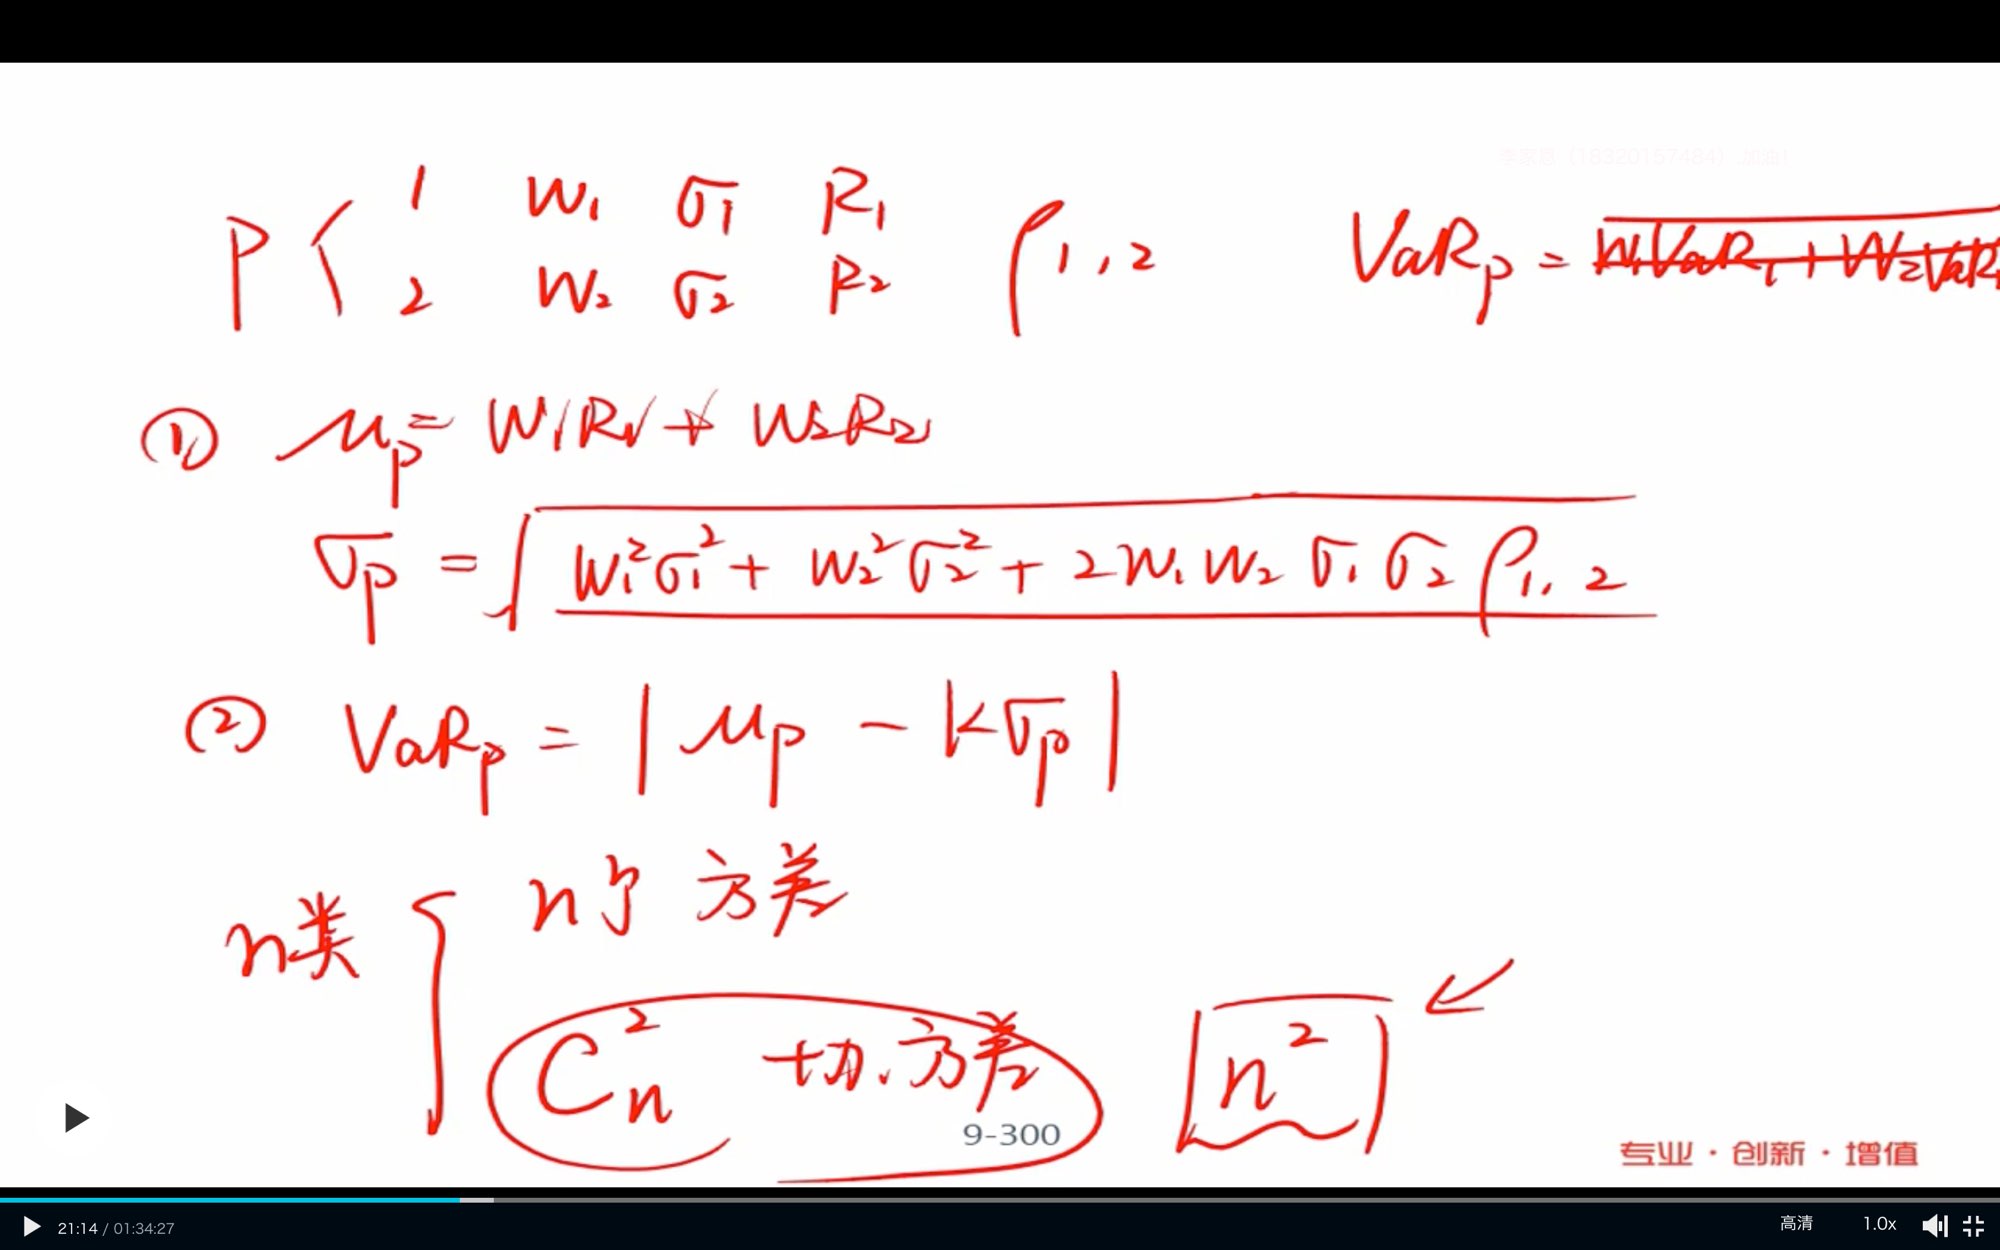 李家恩（18320157484）,加油！
P 1 W₁ σ₁ R₁
2 W₂ σ₂ R₂
ρ₁,₂
VaRₚ = W₁VaR₁ + W₂VaR
① μₚ = W₁R₁ + W₂R₂
σₚ = √(W₁²σ₁² + W₂²σ₂² + 2W₁W₂σ₁σ₂ρ₁,₂)
② VaRₚ = |μₚ - kσₚ|
n类 n个 方差
Cₙ² 协方差 n²
9-300
专业·创新·增值
21:14 / 01:34:27 高清 1.0x